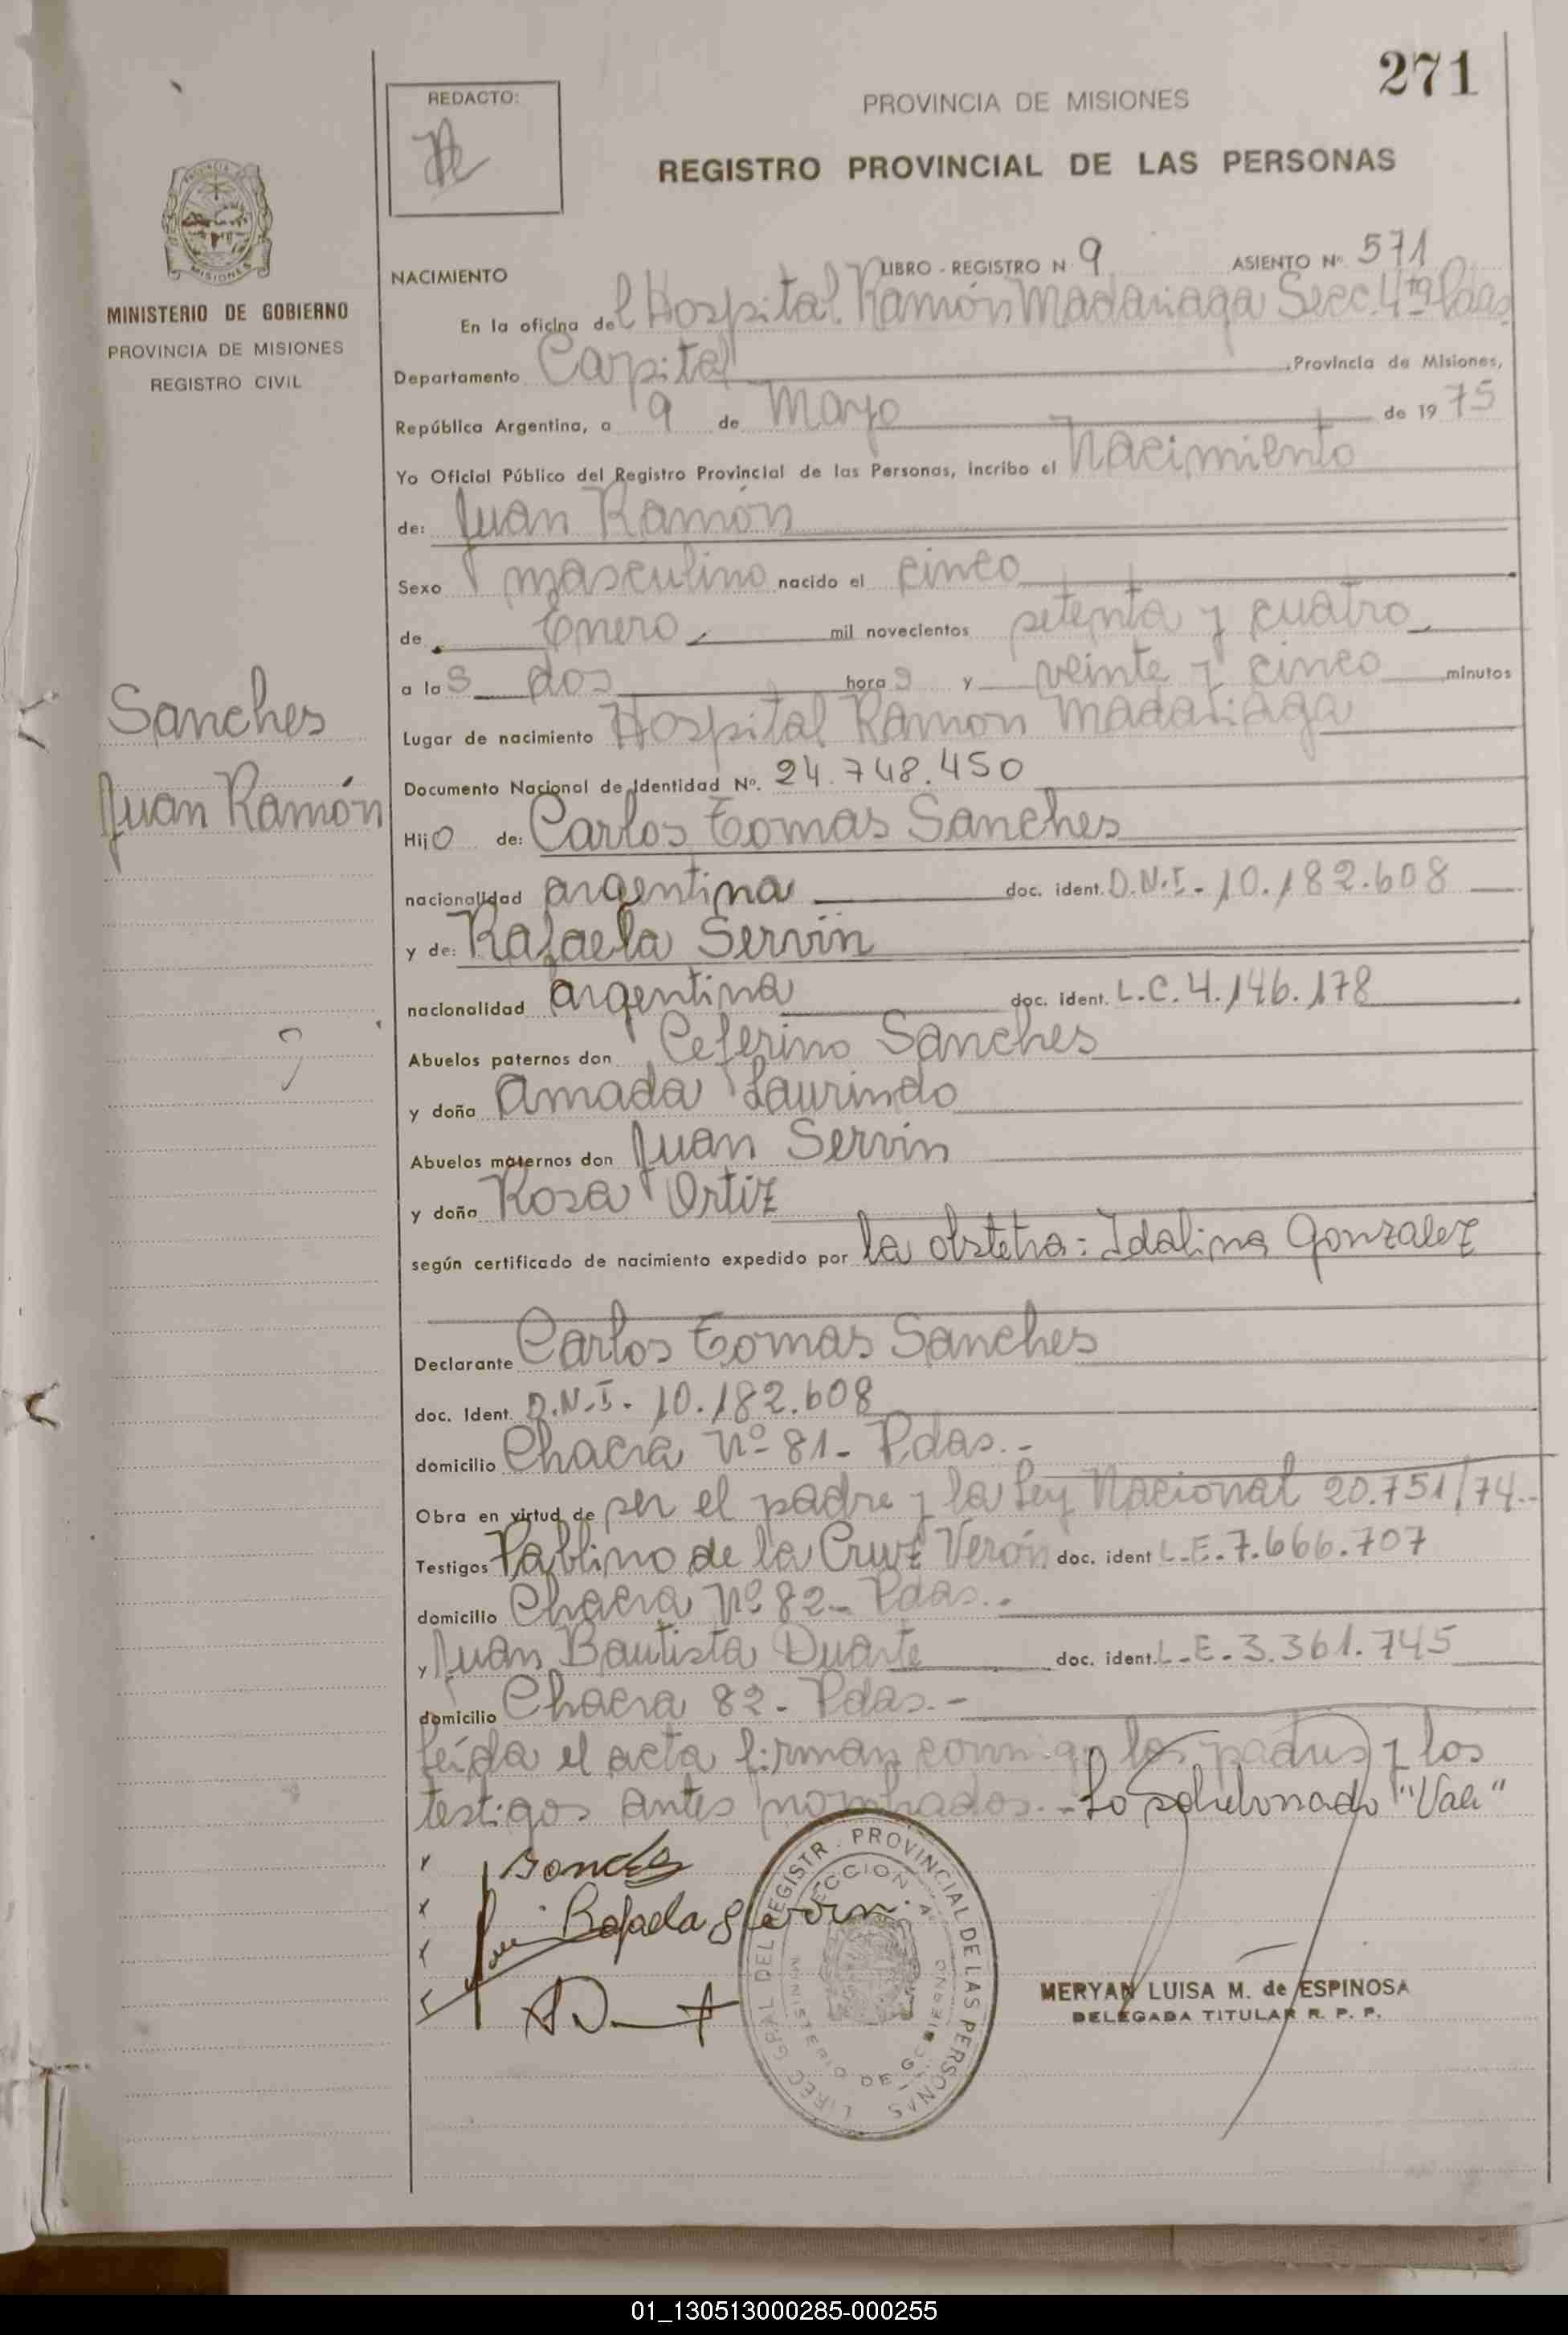 271
REDACTO:
PROVINCIA DE MISIONES
REGISTRO PROVINCIAL DE LAS PERSONAS
MISIONES
MINISTERIO DE GOBIERNO
PROVINCIA DE MISIONES
REGISTRO CIVIL
NACIMIENTO LIBRO - REGISTRO N 9 ASIENTO Nº 571
En la oficina del Hospital Ramón Madariaga Secc. 4ta Pdas
Departamento Capital, Provincia de Misiones,
República Argentina, a 9 de Mayo de 1975
Yo Oficial Público del Registro Provincial de las Personas, incribo el Nacimiento
de: Juan Ramón
Sexo masculino nacido el cinco
de Enero mil novecientos setenta y cuatro
a las dos horas y veinte y cinco minutos
Sanches
Lugar de nacimiento Hospital Ramon Madariaga
Documento Nacional de Identidad Nº. 24.748.450
Juan Ramón
Hijo de: Carlos Tomas Sanches
nacionalidad argentina doc. ident. D.N.I- 10.182.608
y de: Rafaela Servin
nacionalidad argentina doc. ident. L.C. 4.146.178
Abuelos paternos don Ceferino Sanches
y doña Amada Laurindo
Abuelos maternos don Juan Servin
y doña Rosa Ortiz
según certificado de nacimiento expedido por la obstetra: Idalina Gonzalez
Declarante Carlos Tomas Sanches
doc. Ident. D.N.I- 10.182.608
domicilio Chacra Nº 81- Pdas.-
Obra en virtud de ser el padre y la Ley Nacional 20.751/74.-
Testigos Pablino de la Cruz Verón doc. ident L.E. 7.666.707
domicilio Chacra Nº 82- Pdas.-
y Juan Bautista Duarte doc. ident. L.E. 3.361.745
domicilio Chacra 82- Pdas.-
Leída el acta firman conmigo los padres y los
testigos antes nombrados.- Lo sobreborrado "Vale"
Sanches
Rafaela Servin
DIREC GRAL DEL REGISTR. PROVINCIAL DE LAS PERSONAS
MINISTERIO DE GOBIERNO
MERYAN LUISA M. de ESPINOSA
DELEGADA TITULAR R. P. P.
01_130513000285-000255